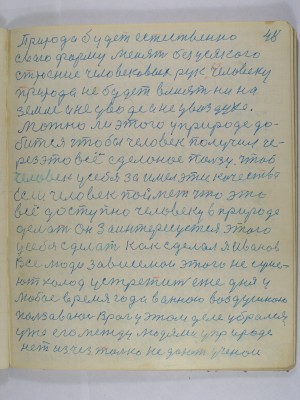 Природа будет естественно 48
свою форму менят без всякого
стрение человековых рук, человеку
природа не будет влият ни на
земле и не у воде и не у воздухе.
Можно ли этого у природе до-
бится чтобы человек получил че-
рез это всё сделоное ползу. Чтоб
человек у себя заимел эти качества
Если человек поймет что это
всё доступно человеку в природе
сделат он заинтересуется этого
у себя сделат как сделал я Иванов
Все люди зависемои этого не
холод устретит еже дня у
любое время года ванною воздушною
ползаваюи Враг у этом деле убрался
уже его между людями у природе
нет из чез только не дают ученои